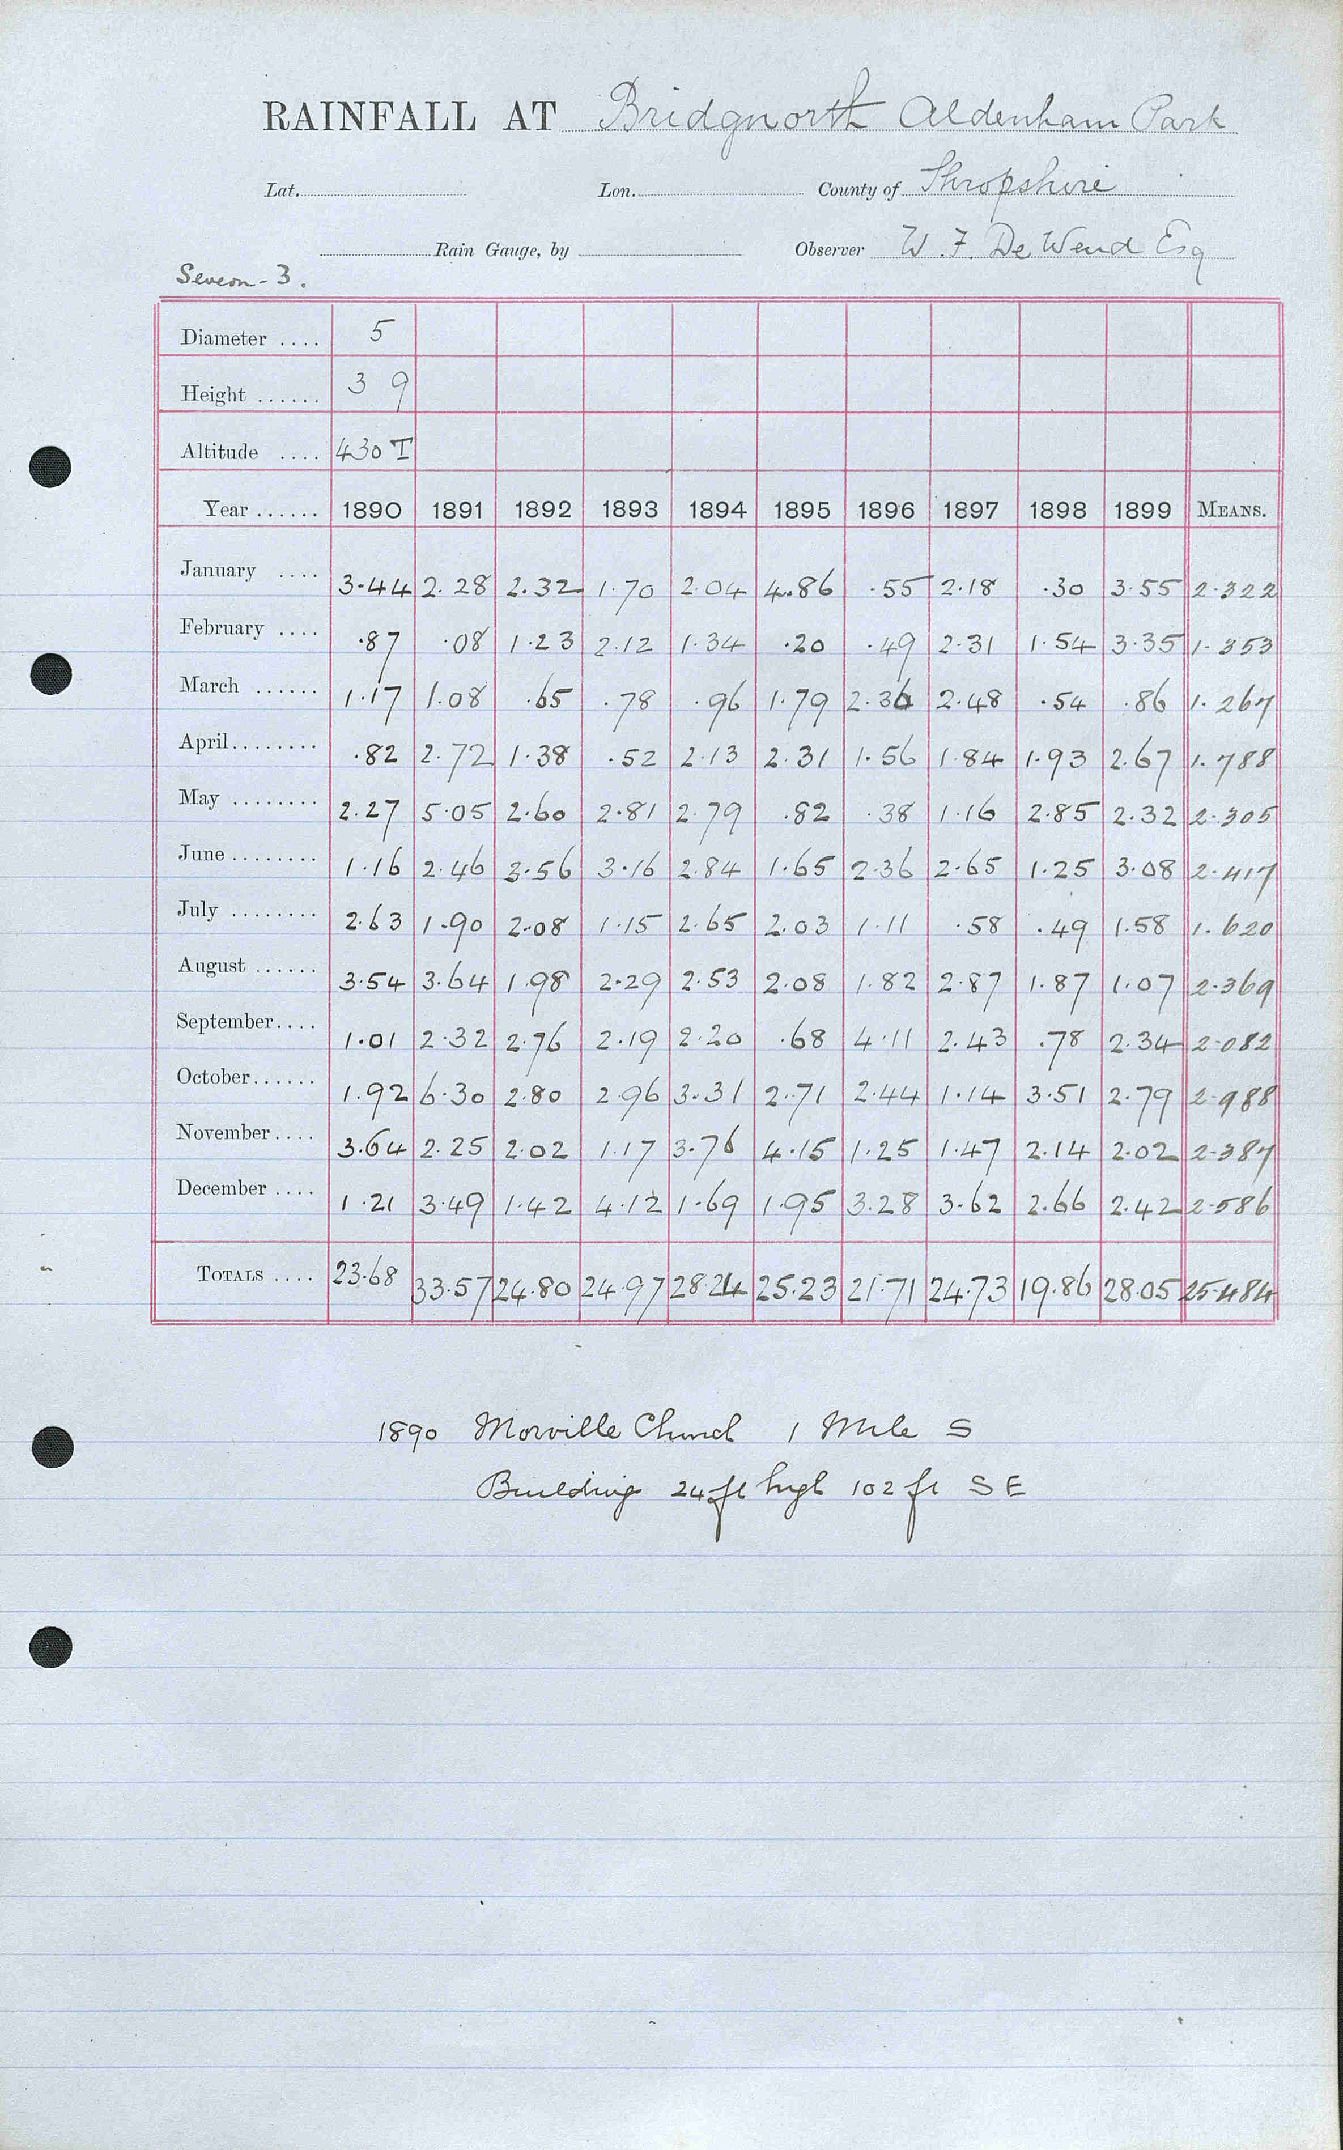 RAINFALL AT Bridgnorth Aldenham Park
Lat. Lon. County of Shropshire
Rain Gauge, by Observer W. F. De Wend Esq
Severn - 3.
Diameter .... 5
Height ...... 3 9
Altitude .... 430 T
Year ...... 1890 1891 1892 1893 1894 1895 1896 1897 1898 1899 MEANS.
January .... 3.44 2.28 2.32 1.70 2.04 4.86 .55 2.18 .30 3.55 2.322
February .... .87 .08 1.23 2.12 1.34 .20 .49 2.31 1.54 3.35 1.353
March ...... 1.17 1.08 .65 .78 .96 1.79 2.36 2.48 .54 .86 1.267
April........ .82 2.72 1.38 .52 2.13 2.31 1.56 1.84 1.93 2.67 1.788
May ........ 2.27 5.05 2.60 2.81 2.79 .82 .38 1.16 2.85 2.32 2.305
June ........ 1.16 2.46 3.56 3.16 2.84 1.65 2.36 2.65 1.25 3.08 2.417
July ........ 2.63 1.90 2.08 1.15 2.65 2.03 1.11 .58 .49 1.58 1.620
August ...... 3.54 3.64 1.98 2.29 2.53 2.08 1.82 2.87 1.87 1.07 2.369
September.... 1.01 2.32 2.76 2.19 2.20 .68 4.11 2.43 .78 2.34 2.082
October...... 1.92 6.30 2.80 2.96 3.31 2.71 2.44 1.14 3.51 2.79 2.988
November.... 3.64 2.25 2.02 1.17 3.76 4.15 1.25 1.47 2.14 2.02 2.387
December .... 1.21 3.49 1.42 4.12 1.69 1.95 3.28 3.62 2.66 2.42 2.586
TOTALS .... 23.68 33.57 24.80 24.97 28.24 25.23 21.71 24.73 19.86 28.05 25.484
1890 Morville Church 1 Mile S
Building 24 ft high 102 ft S E